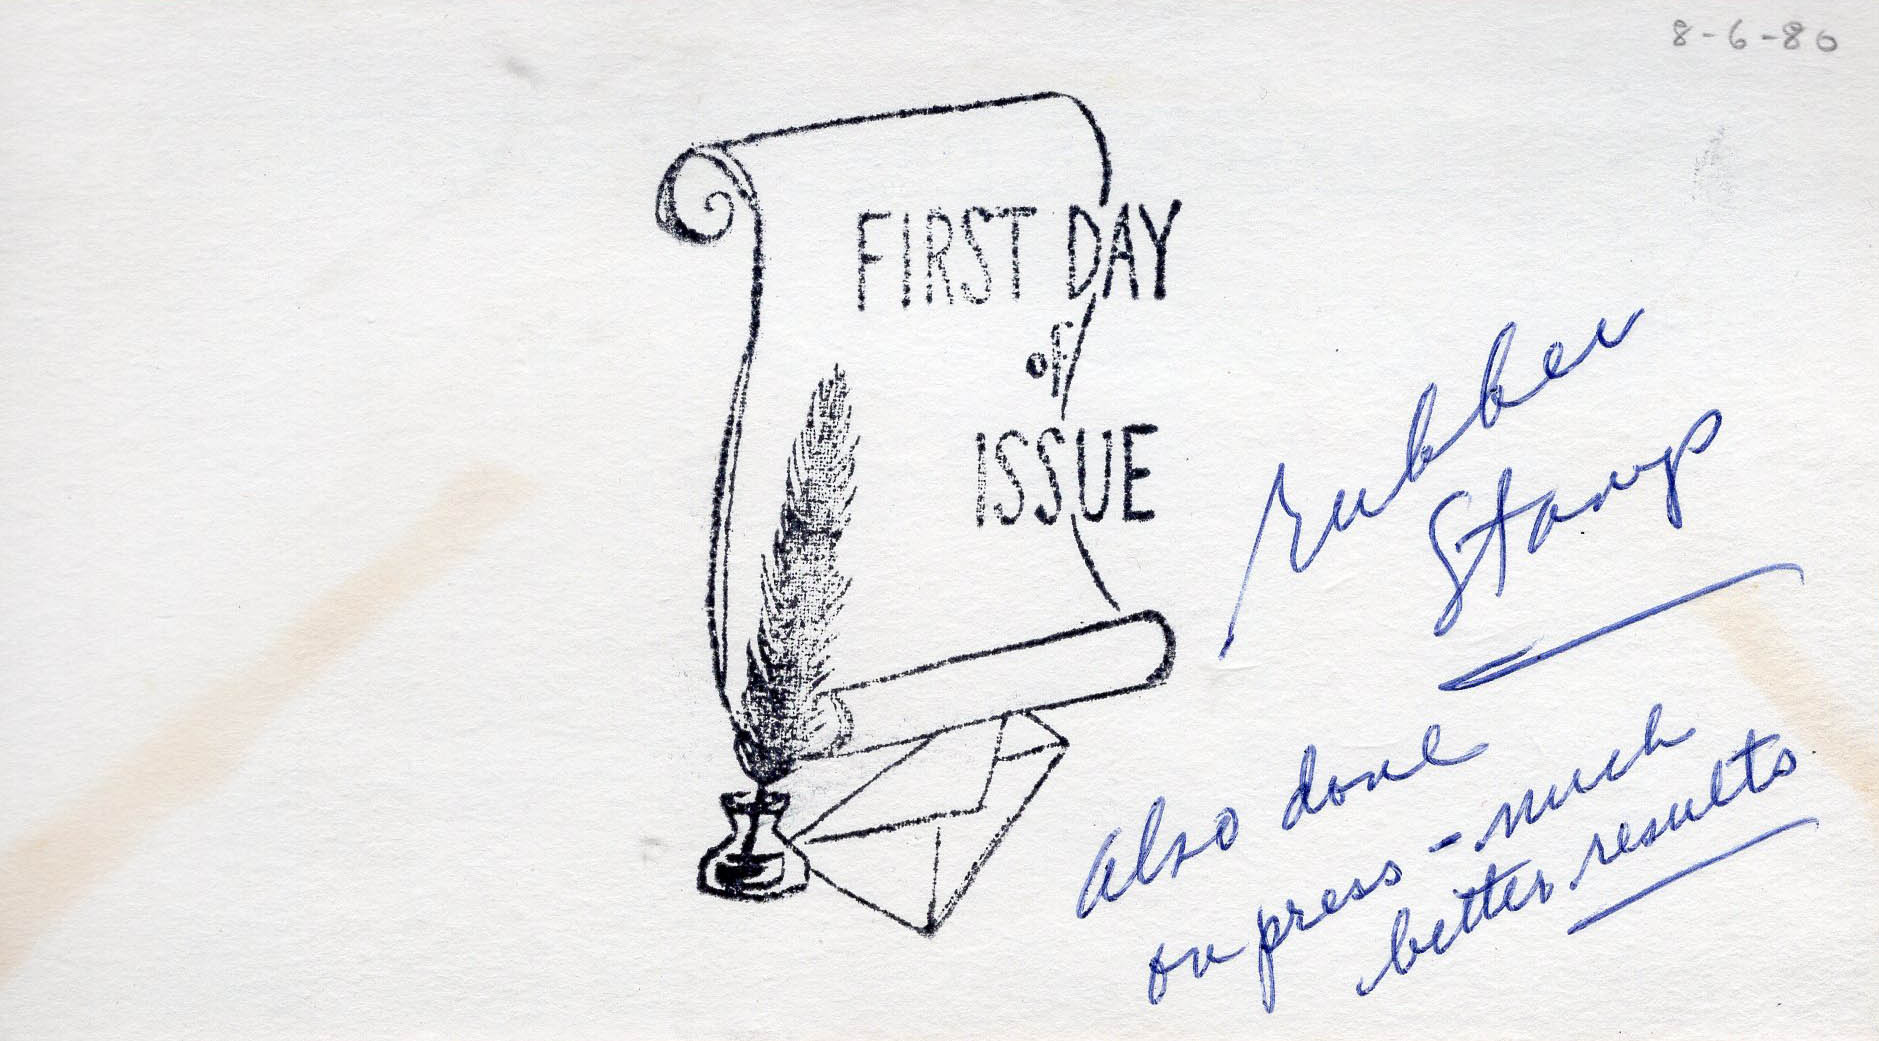 8-6-80
FIRST DAY
of
ISSUE
rubber
stamp
also done
on press - much
better results